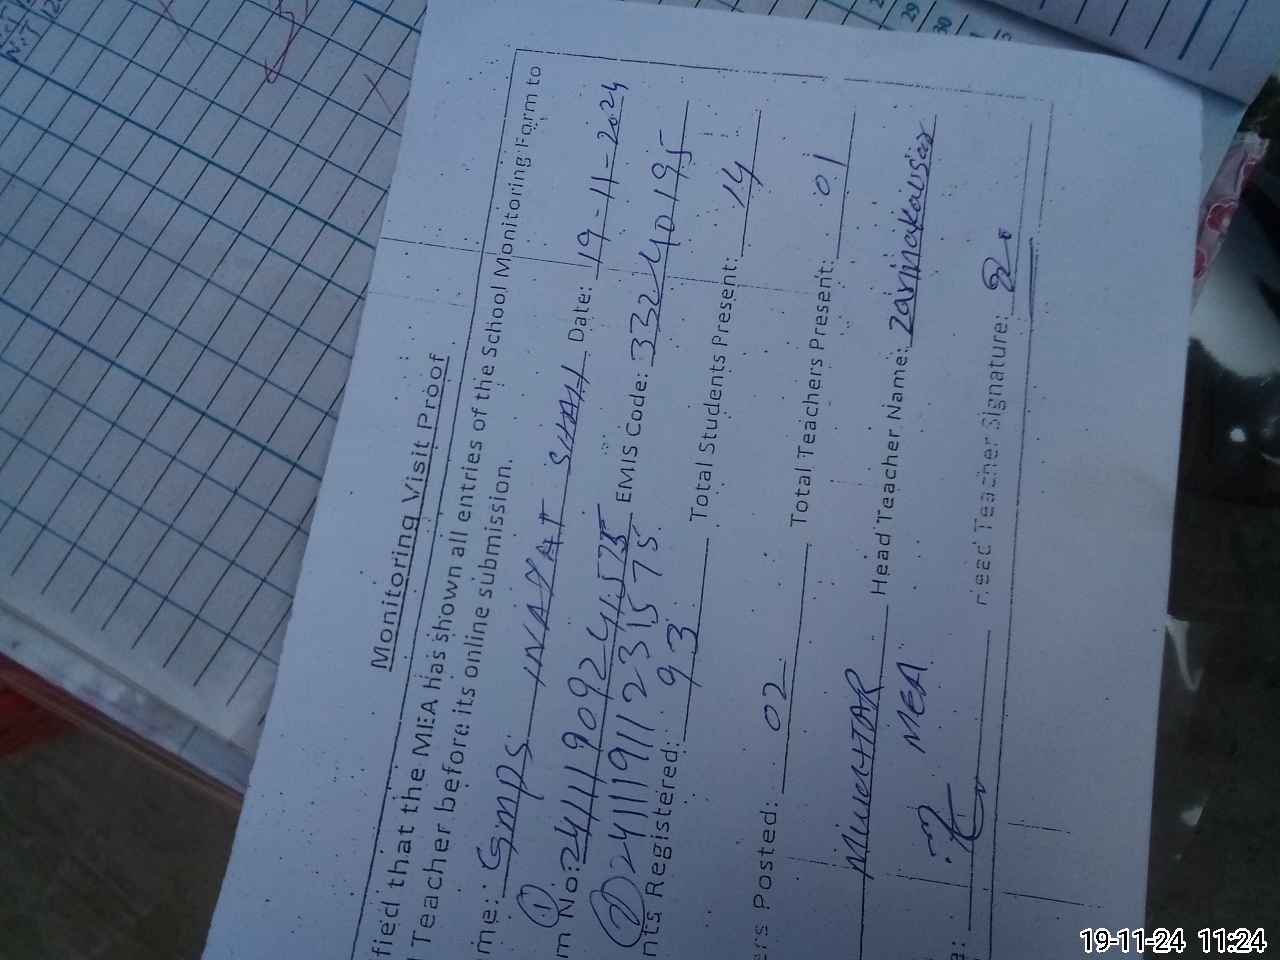 Monitoring Visit Proof
fied that the MEA has shown all entries of the School Monitoring Form to
Teacher before its online submission.
me: GMPS INAYAT SHAH Date: 19-11-2024
① m No: 24111909241575 EMIS Code: 33240195
② 24111911231575
nts Registered: 93 Total Students Present: 14
ers Posted: 02 Total Teachers Present: 01
MUCHTAR Head Teacher Name: zarinakausar
MEA
Head Teacher Signature:
19-11-24 11:24